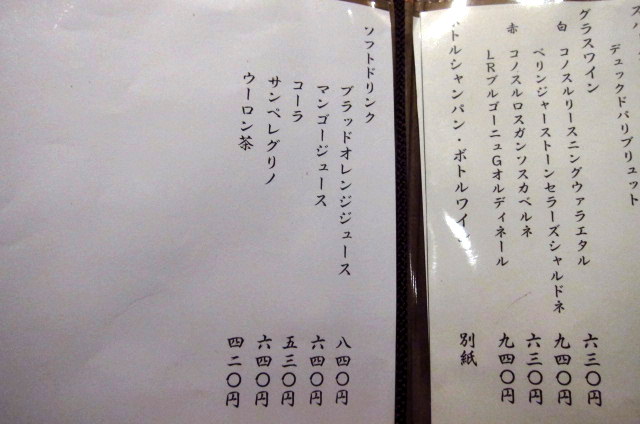 デュックドパリブリュット
グラスワイン
白 コノスルリースニングヴァラエタル 六三〇円
ベリンジャーストーンセラーズシャルドネ 九四〇円
赤 コノスルロスガンソスカベルネ 六三〇円
LRブルゴーニュGオルディネール 九四〇円
トルシャンパン・ボトルワイン 別紙
ソフトドリンク
ブラッドオレンジジュース 八四〇円
マンゴージュース 六四〇円
コーラ 五三〇円
サンペレグリノ 六四〇円
ウーロン茶 四二〇円